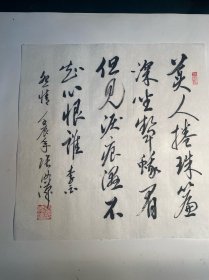 美人捲珠簾
深坐顰蛾眉
但見淚痕濕不
知心恨誰 李白
怨情